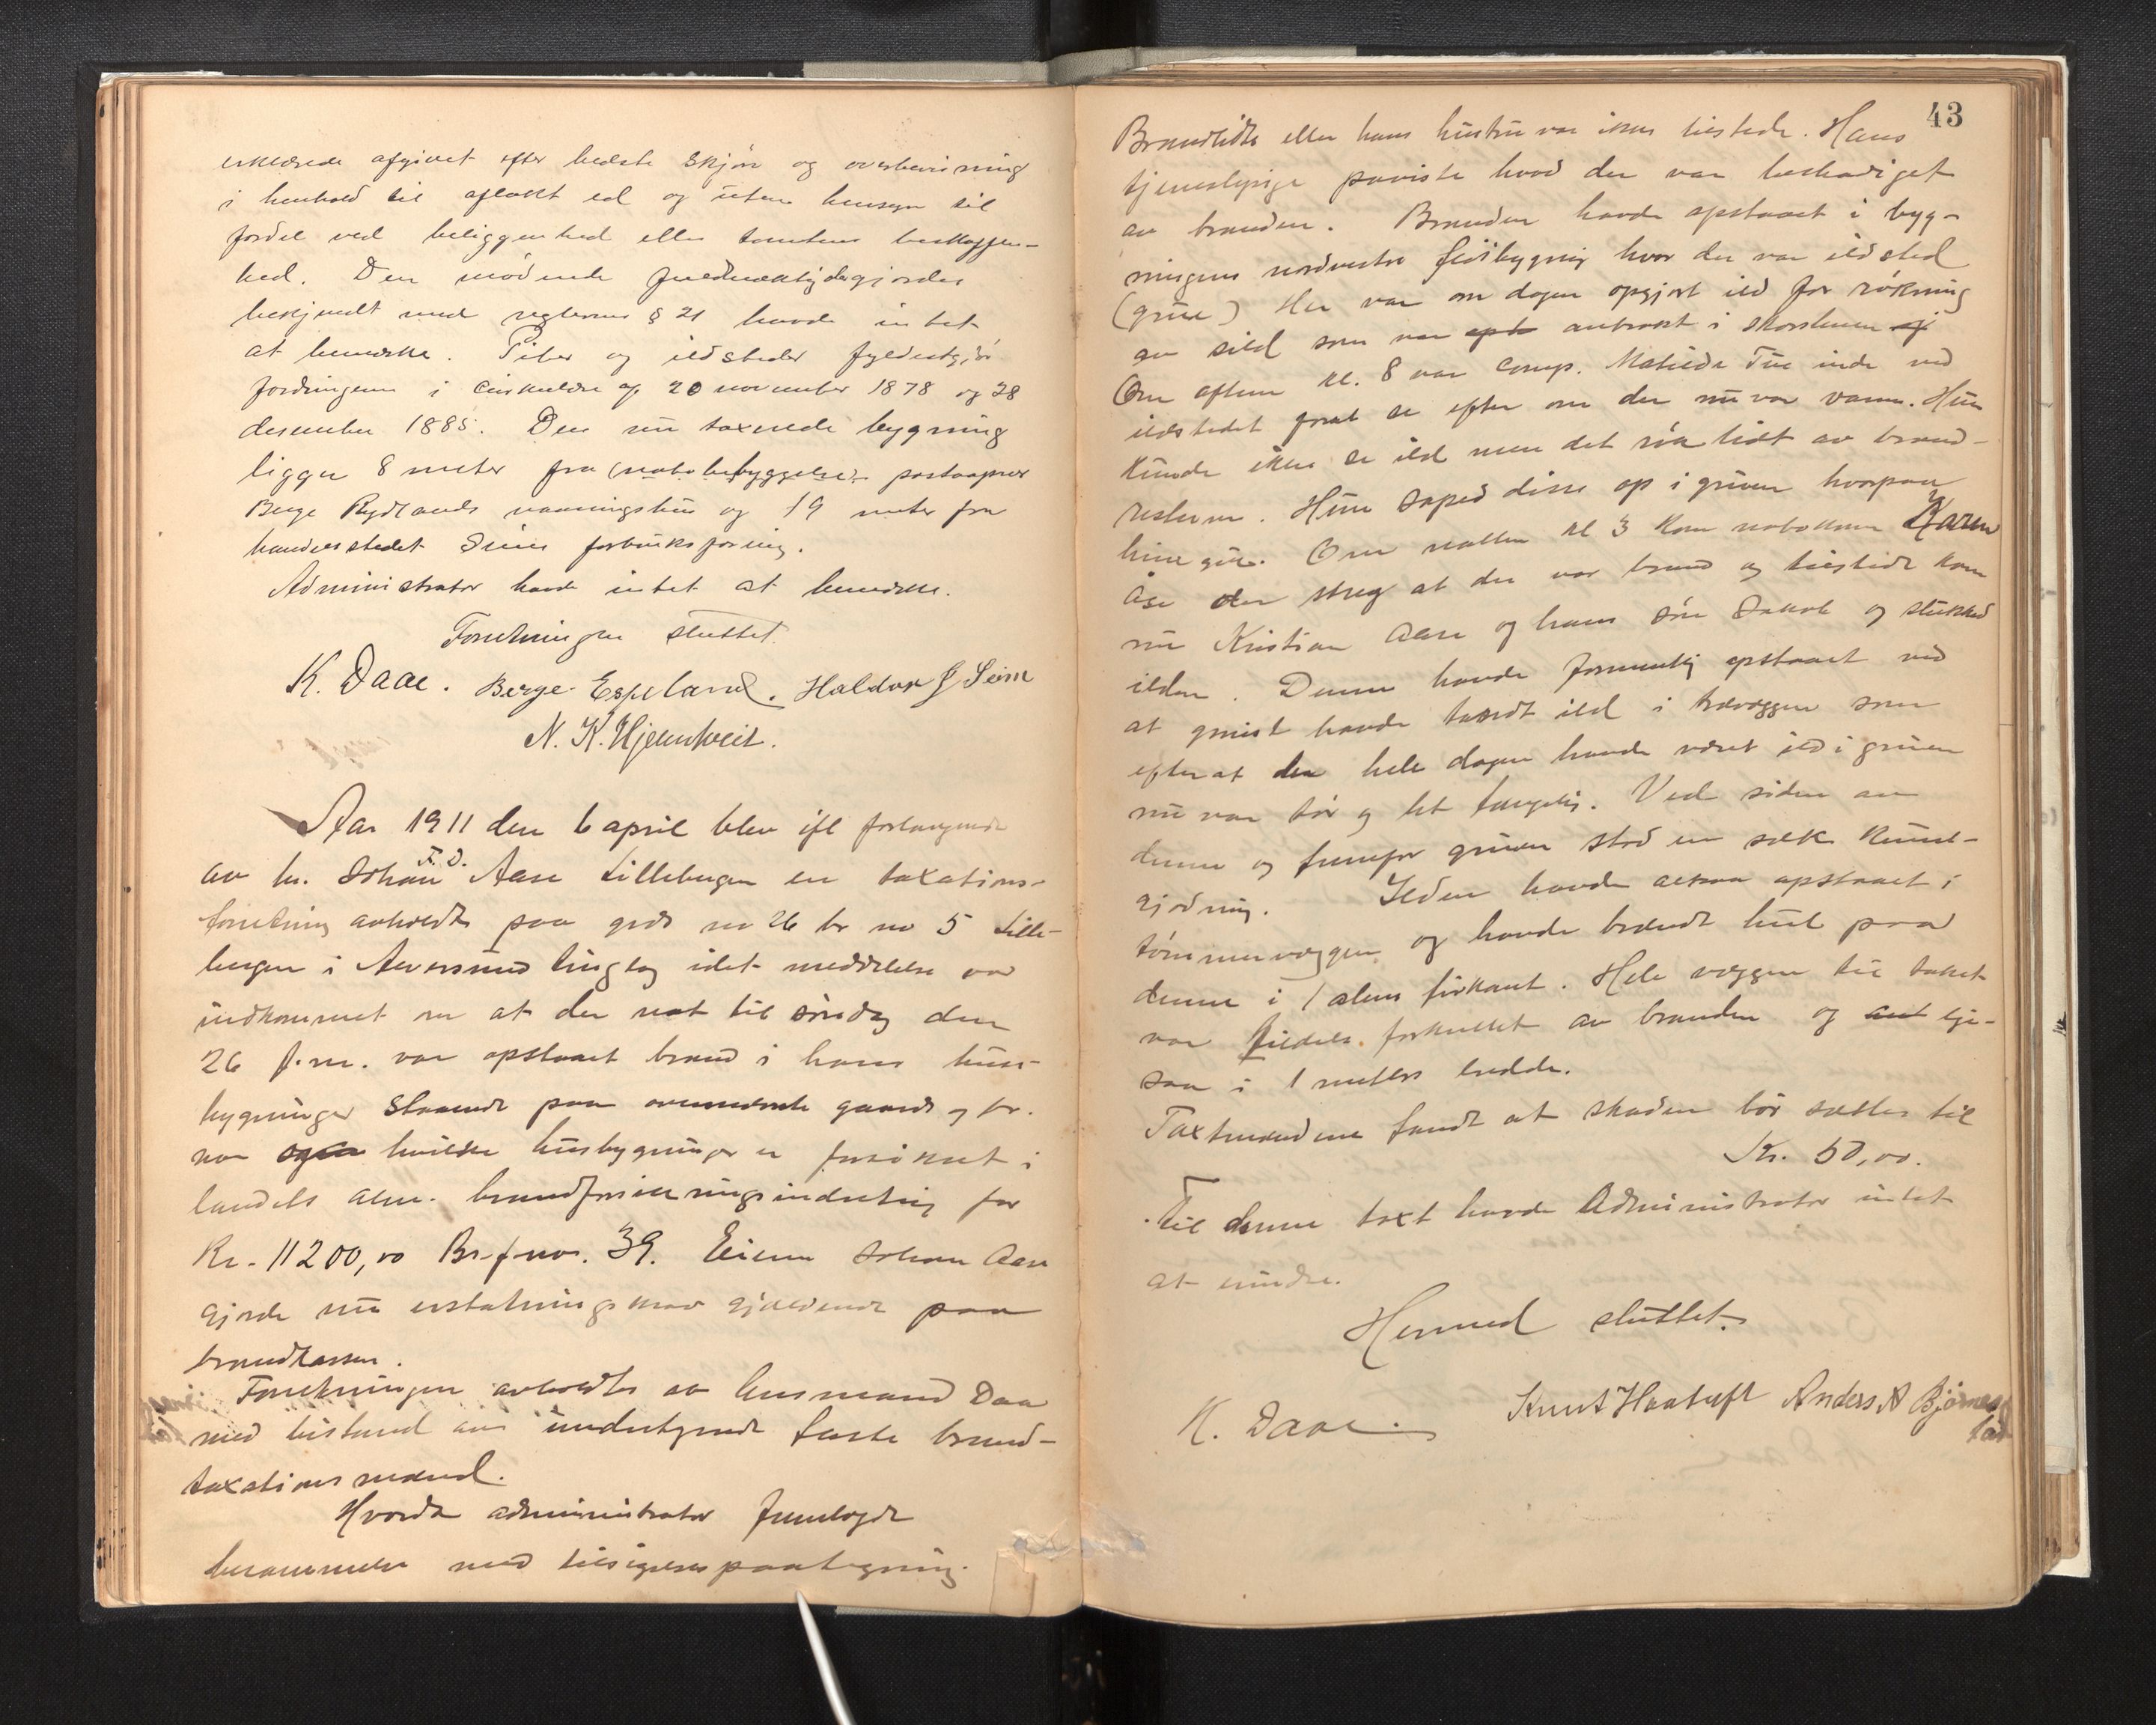 erklærede afgivet efter bedste skjøn og overbevisning
i henhold til aflakt ed og uten hensyn til
fordel ved beliggenhed eller tomtens beskaffen-
hed. Den mødende gjordes
bekjendt med reglernes § 21 havde intet
at bemærke. Piber og ildsteder fyldestgjør
fordringerne i cirkulære af 20 november 1878 og 28
desember 1885. Den nu taxerede bygning
ligger 8 meter fra (nabobebyggelse) postaapner
Berge Rydlands vaaningshus og 19 meter fra
handelsstedet Seims forbruksforning.
Administrator havde intet at bemærke.
Forretningen sluttet.
K. Daae. Berge Espeland. Haldor J Seim
N. K. Hjelmtveit.
Aar 1911 den 6 april blev ifl forlangende
av hr. Johan F. D. Aase Lillebergen en taxations-
forretning avholdt paa grds no 26 br no 5 Lille-
bergen i Alversund tinglag idet meddelelse var
indkommet om at der nat til søndag den
26 f.m. var opstaaet brand i hans hus-
bygninger staaende paa ovennævnte gaards og br.
no hvilke husbygninger er forsikret i
landets alm. brandforsikringsindretnig for
Kr. 11200,00 Br.f.no. 39. Eieren Johan Aase
gjorde nu erstatningskrav gjældende paa
brandkassen.
Forretningen avholdtes av lensmand Daae
med bistand av undertegnede faste brand-
taxationsmænd.
Hvorda administrator fremlagde
berammelse med tilsigelsespaategning.
43
Brandlidte eller hans hustru var ikke tilstede. Hans
tjenestepige paaviste hvad der var beskadiget
av branden. Branden havde opstaaet i byg-
ningens nordvestre fløibygning hvor der var ildsted
(grue) Her var om dagen opgjort ild for røkning
av sild som var anbrakt i skorstenen
Om aftenen kl. 8 var Matilde Tue inde ved
ildstedet forat se efter om der nu var varme. Hun
kunde ikke se ild men det røk lidt av brand-
resterne. Hun soped disse op i gruen hvorpaa
hun gik. Om natten kl 3 kom nabokone Karen
Åse der skreg at der var brand og tilstede kom
nu Kristian Aase og hans søn Jakob og slukked
ilden. Denne havde formentlig opstaaet ved
at gnist havde tændt ild i trævæggen som
efterat der hele dagen havde været ild i gruen
nu var tør og let fængelig. Ved siden av
denne og fremfor gruen stod en sæk kunst-
gjødning. Ilden havde altsaa opstaaet i
tømmervæggen og havde brændt hul paa
denne i 1 alens firkant. Hele væggen til taket
var tildels forkullet av branden og lige-
saa i 1 meters bredde.
Taxtmændene fandt at skaden bør sættes til
Kr. 50,00.
Til denne taxt havde Administrator intet
at erindre.
Hermed sluttet.
K. Daae. Knut Haatuft Anders A Bjørnes
tad